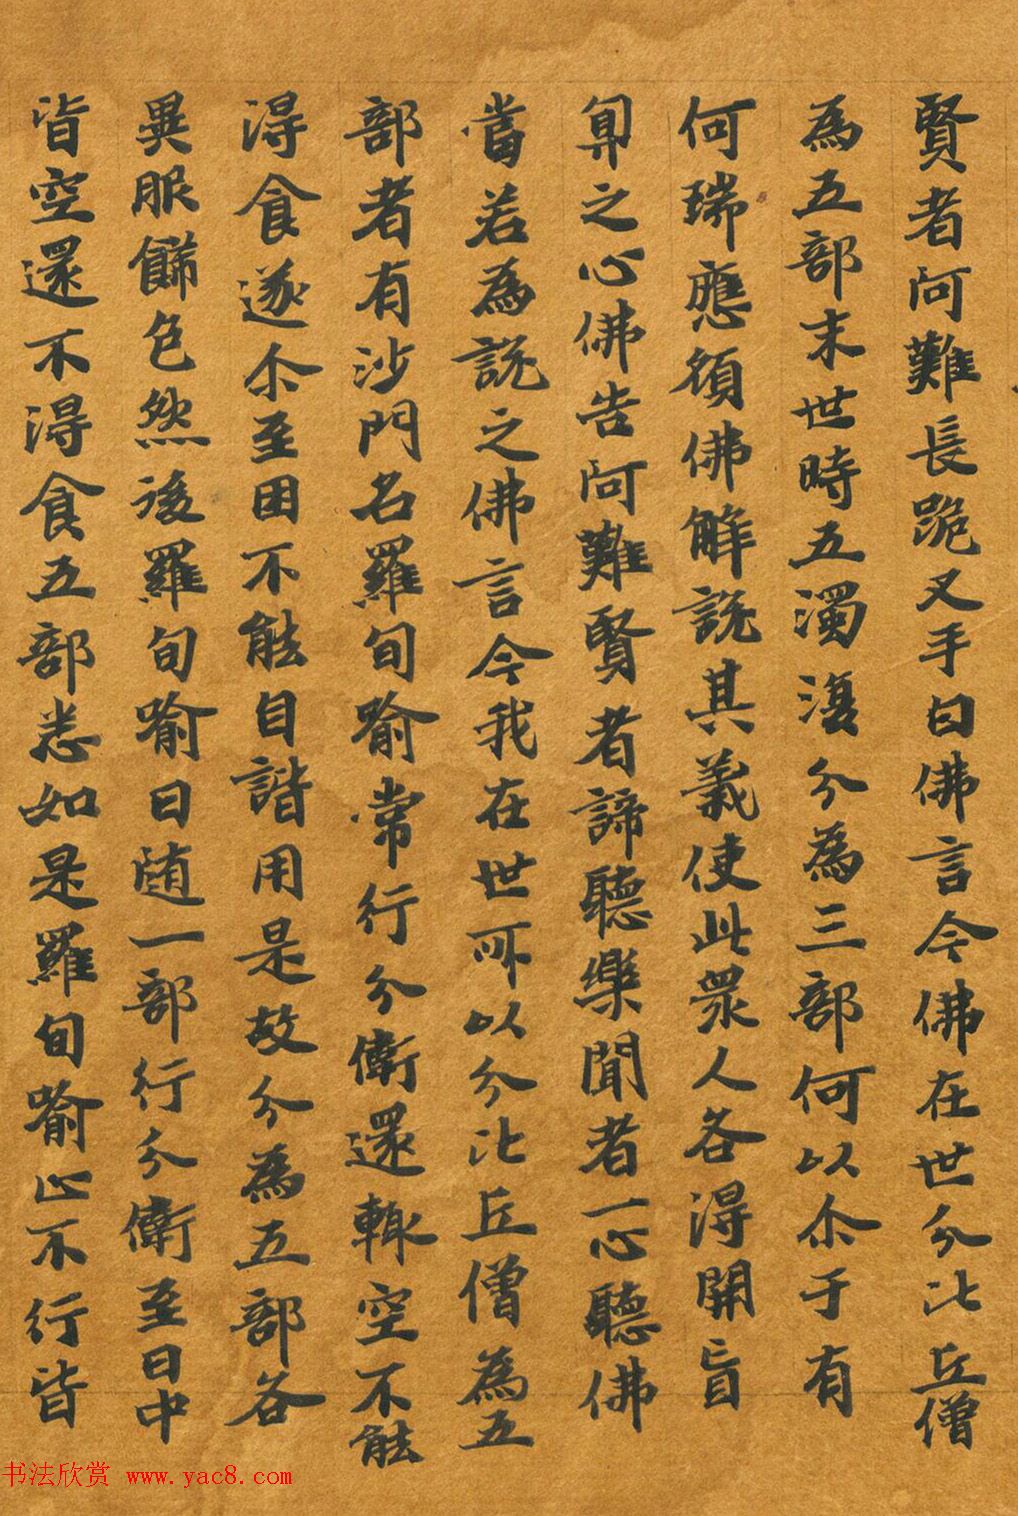 賢者阿難長跪叉手曰佛言今佛在世分比丘僧
為五部末世時五濁復分為三部何以尒于有
何瑞應願佛解說其義使此眾人各得開盲
冥之心佛告阿難賢者諦聽樂聞者一心聽佛
當若為說之佛言今我在世所以分比丘僧為五
部者有沙門名羅旬喻常行分衛還輙空不能
得食遂尒至困不能自諧用是故分為五部各
異服餙色然後羅旬喻日随一部行分衛至日中
皆空還不得食五部悉如是羅旬喻止不行皆
书法欣赏 www.yac8.com